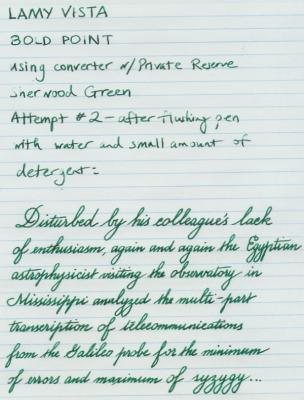 LAMY VISTA
BOLD POINT
using converter w/Private Reserve
Sherwood Green
Attempt #2 - after flushing pen
with water and small amount of
detergent:
Disturbed by his colleague's lack
of enthusiasm, again and again the Egyptian
astrophysicist visiting the observatory in
Mississippi analyzed the multi-part
transcription of telecommunications
from the Galileo probe for the minimum
of errors and maximum of syzygy...